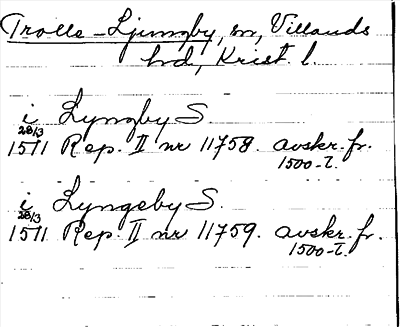 Trolle-Ljungby, sn, Villands
hd, Krist. l.
i Lyngby S.
28/3
1511 Rep. II nr 11758. avskr. fr.
1500-t.
i Lyngeby S.
28/3
1511 Rep. II nr 11759. avskr. fr.
1500-t.